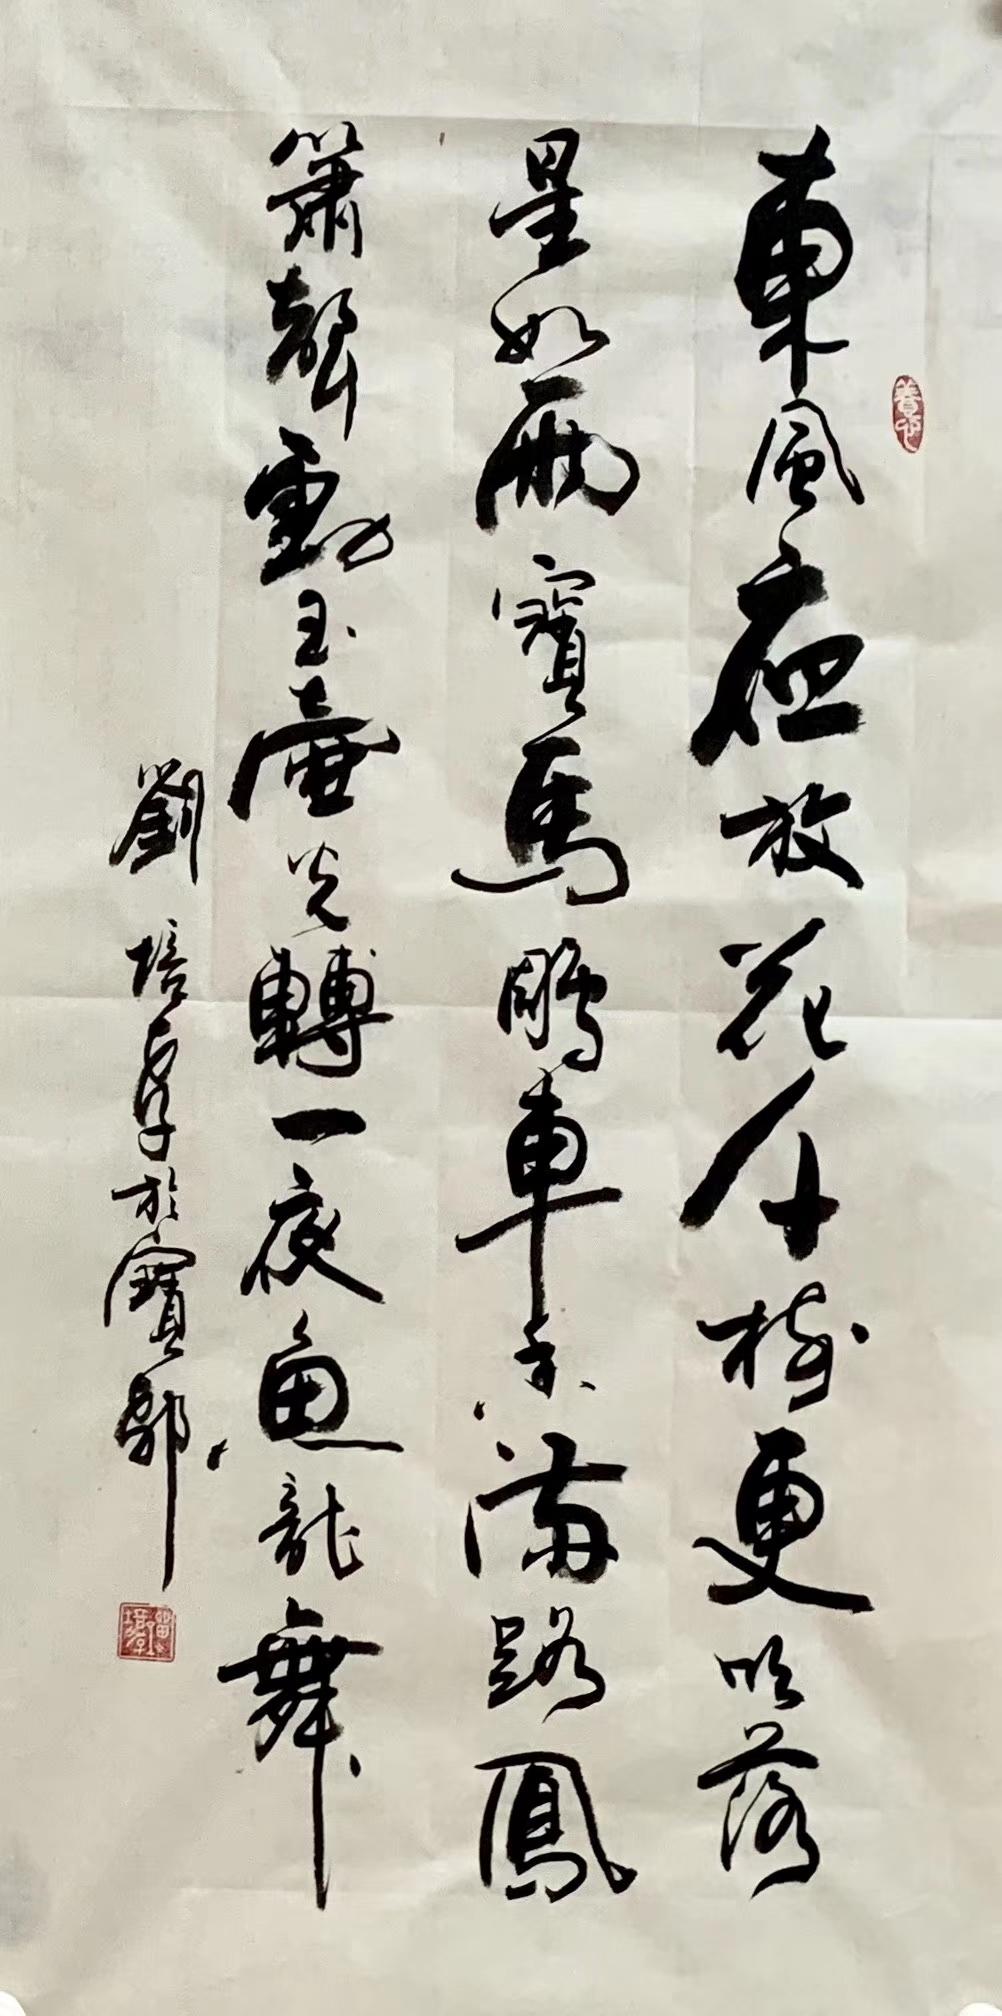 東風亱放花千樹更吹落
星如雨寶馬鵰車香滿路鳳
簫聲動玉壺光轉一夜魚龍舞
劉培於寶
養心